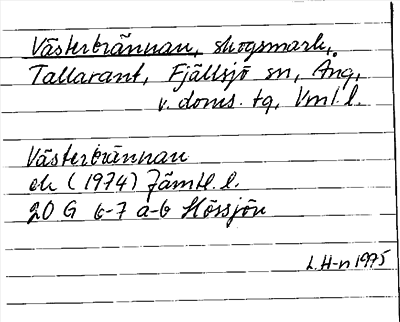 Västerbrännan, skogsmark,
Tallarant, Fjällsjö sn, Ång,
v. doms. tg, Vml. l.
Västerbrännan
ek (1974) Jämtl. l.
20 G 6-7 a-b Hörsjön
L. H-n 1975